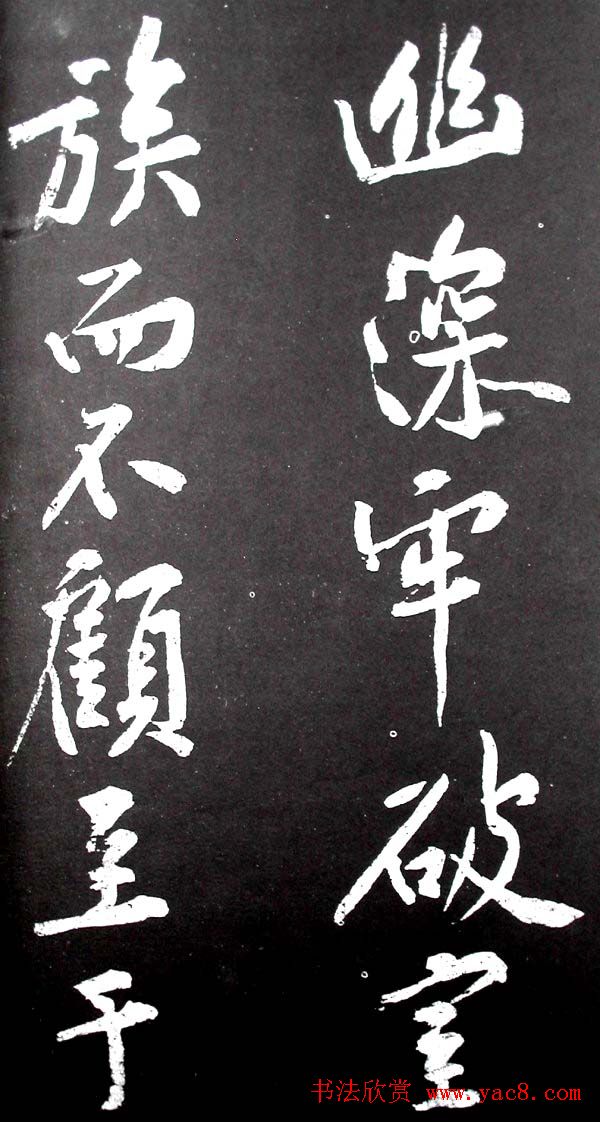 幽深牢破室
族而不顧至于
书法欣赏 www.yac8.com